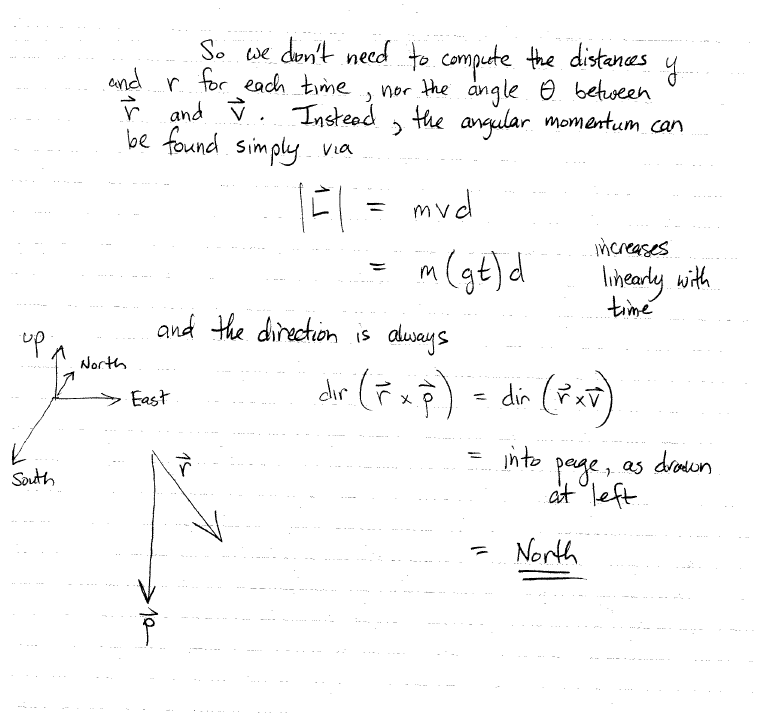 So we don't need to compute the distances y
and r for each time, nor the angle θ between
r⃗ and v⃗. Instead, the angular momentum can
be found simply via
|L⃗| = mvd
= m(gt)d
increases
linearly with
time
and the direction is always
up
North
East
South
dir (r⃗ × p⃗) = dir (r⃗ × v⃗)
= into page, as drawn
at left
= North
r⃗
p⃗